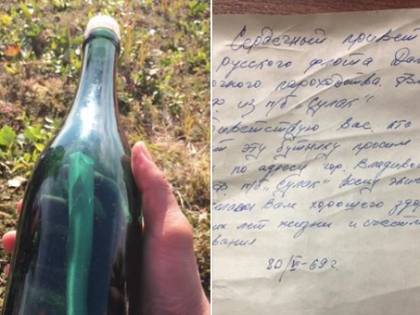 Сердечный привет
русского флота Дал
очного пароходства.
из п/б "Сулак"
ветствую Вас, кто
т эту бутылку просим
по адресу гор. Владивос
п/б "Сулак" всему
Вам хорошего здор
их лет жизни и счастли
вания
20/VI-69 г